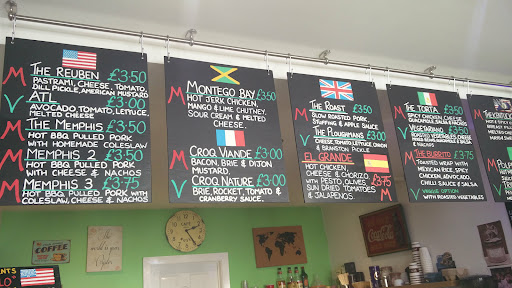 THE REUBEN £3.50
M PASTRAMI, CHEESE, TOMATO,
DILL PICKLE, AMERICAN MUSTARD
ATL £3.00
V AVOCADO, TOMATO, LETTUCE,
MELTED CHEESE
THE MEMPHIS £3.50
M HOT BBQ PULLED PORK
WITH HOMEMADE COLESLAW
MEMPHIS 2 £3.50
M HOT BBQ PULLED PORK
WITH CHEESE & NACHOS
MEMPHIS 3 £3.75
M HOT BBQ PULLED PORK WITH
COLESLAW, CHEESE & NACHOS
MONTEGO BAY £3.50
M HOT JERK CHICKEN,
MANGO & LIME CHUTNEY
SOUR CREAM & MELTED
CHEESE.
CROQ VIANDE £3.00
M BACON, BRIE & DIJON
MUSTARD.
CROQ NATURE £3.00
V BRIE, ROCKET, TOMATO &
CRANBERRY SAUCE.
THE ROAST £3.50
M SLOW ROASTED PORK
STUFFING & APPLE SAUCE
THE PLOUGHMANS £3.00
V CHEESE, TOMATO, LETTUCE, ONION
& BRANSTON PICKLE
EL GRANDE
HOT CHICKEN
CHEESE & CHORIZO £3.75
WITH PESTO OLIVES
SUN DRIED TOMATOES M
& JALAPENOS.
THE TORTA £3.50
M SPICY CHICKEN, CHEESE
GUACAMOLE, SALSA & NACHOS
VEGETARIANO £3.50
V
GUACAMOLE, SALSA & NACHOS
THE BURRITO £3.75
M WRAP WITH
MEXICAN RICE, SPICY
CHICKEN, AVOCADO,
CHILLI SAUCE & SALSA
V VEGGIE OPTION
WITH ROASTED VEGETABLES
M
M
V
COFFEE
Coca-Cola